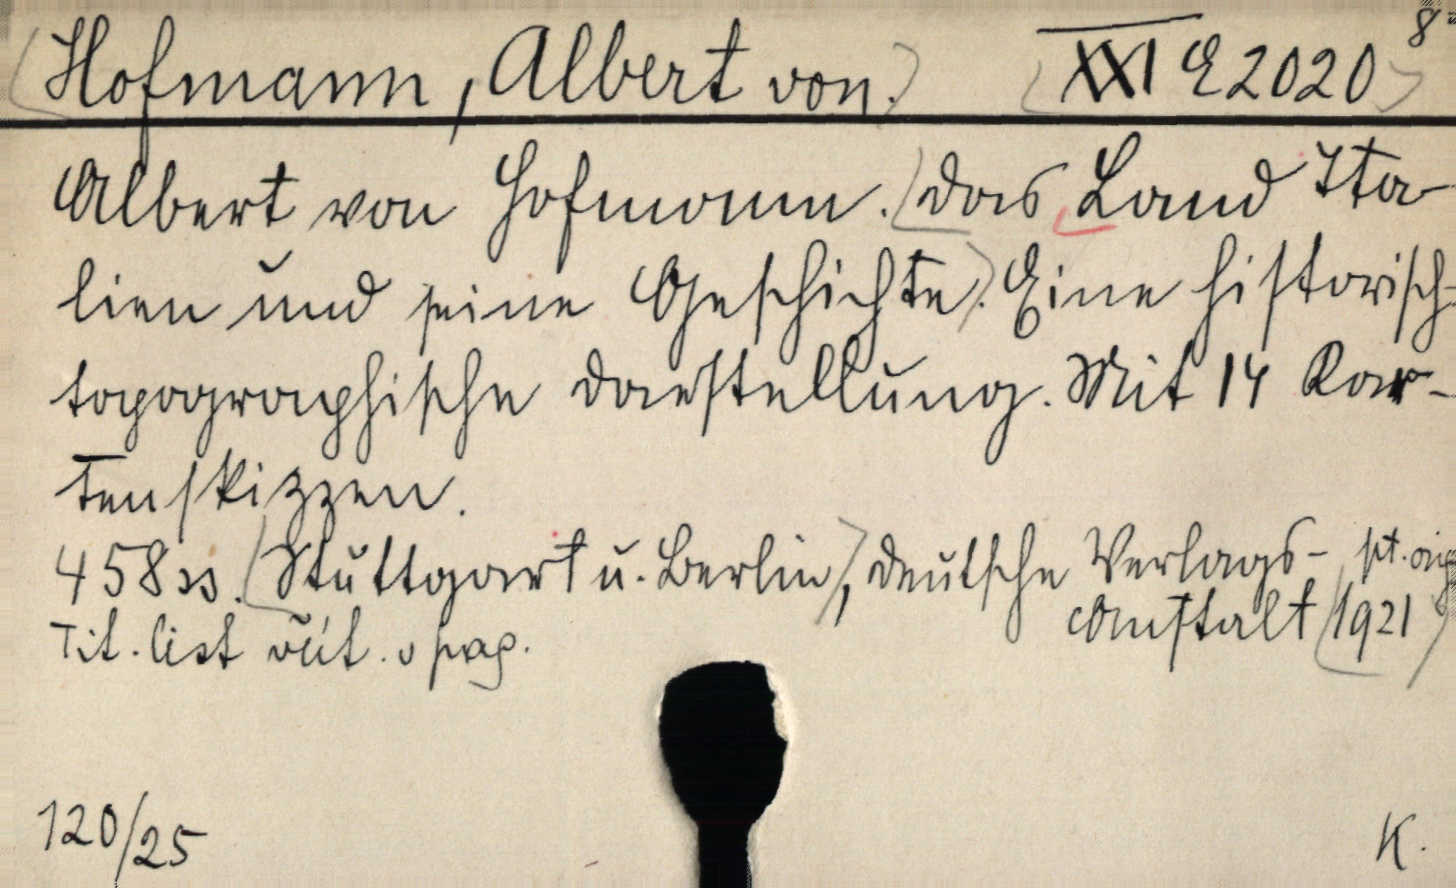 Hofmann, Albert von. XXI E 2020 8
Albert von Hofmann. Das Land Ita-
lien und seine Geschichte. Eine historisch-
topographische Darstellung. Mit 14 Kar-
tenskizzen.
458 ss. Stuttgart u. Berlin, Deutsche Verlags-
Anstalt 1921
Tit. list
120/25
K.